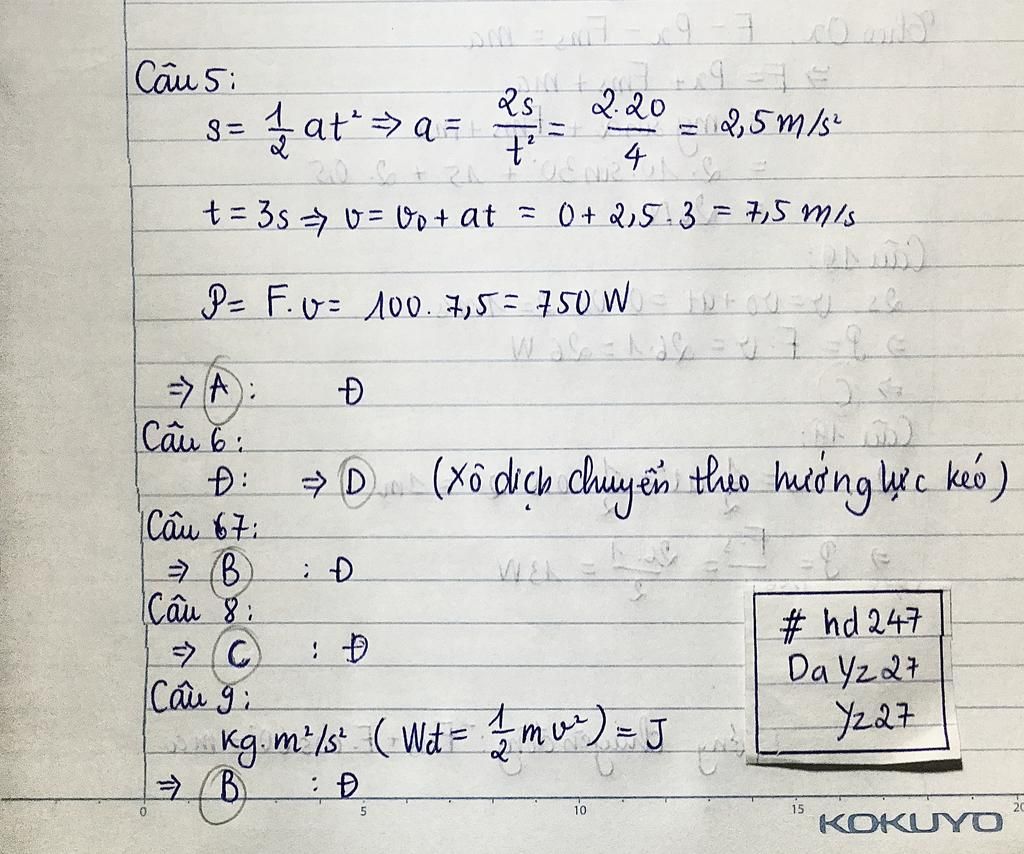 Câu 5:
s = 1/2 at² => a = 2s/t² = 2.20/4 = 2,5 m/s²
t = 3s => v = v₀ + at = 0 + 2,5.3 = 7,5 m/s
P = F.v = 100.7,5 = 750 W
=> A: Đ
Câu 6:
Đ: => D (Xô dịch chuyển theo hướng lực kéo)
Câu 67:
=> B : Đ
Câu 8:
=> C : Đ
Câu 9:
kg.m²/s² (Wđ = 1/2 mv²) = J
=> B : Đ
# hd247
DaYz27
Yz27
0 5 10 15 20
KOKUYO